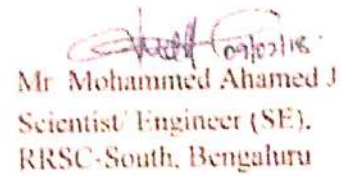 09/02/18
Mr. Mohammed Ahamed J
Scientist/ Engineer (SE),
RRSC-South, Bengaluru